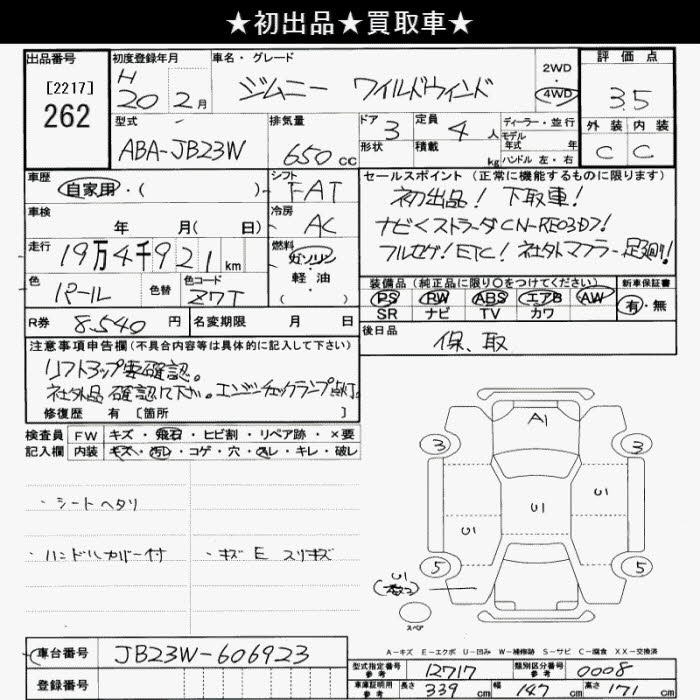 ★初出品★買取車★
出品番号 初度登録年月 車名・グレード 評価点
[2217] H 2WD
262 20 2月 ジムニー ワイルドウィンド 4WD 3.5
型式 排気量 ドア 定員 ディーラー・並行 外装 内装
ABA-JB23W 650cc 3 4人 モデル年式 年 C C
形状 積載 kg ハンドル 左・右
車歴 シフト セールスポイント(正常に機能するものに限ります)
自家用・( ) FAT 初出品! 下取車!
車検 年 月( 日) 冷房 AC ナビ<ストラーダCN-RE03D7!
走行 19万4千921km 燃料 ガソリン・軽油・( ) フルセグ!ETC! 社外マフラー 足廻り!
色 パール 色替 色コード Z7T 装備品(純正品に限り○をつけてください) 新車保証書
PS PW ABS エアB AW 有・無
SR ナビ TV カワ
R券 8.540円 名変期限 月 日 後日品
保、取
注意事項申告欄(不具合内容等は具体的に記入して下さい)
リフトアップ要確認。
社外品確認して下さい。エンジンチェックランプ点灯。
修復歴 有 [箇所 ]
検査員 FW キズ・飛石・ヒビ割・リペア跡・×要
記入欄 内装 キズ・汚レ・コゲ・穴・スレ・キレ・破レ
・シートヘタリ
・ハンドルカバー付 ・キズ E スリキズ
A1
3 3
U1
U1
U1
5 5
U1
スペア
A-キズ E-エクボ U-凹み W-補修跡 S-サビ C-腐食 XX-交換済
車台番号 JB23W-606923
登録番号
型式指定番号 参考 12717 類別区分番号 参考 0008
車庫証明用 参考 長さ 339cm 幅 147cm 高さ 171cm